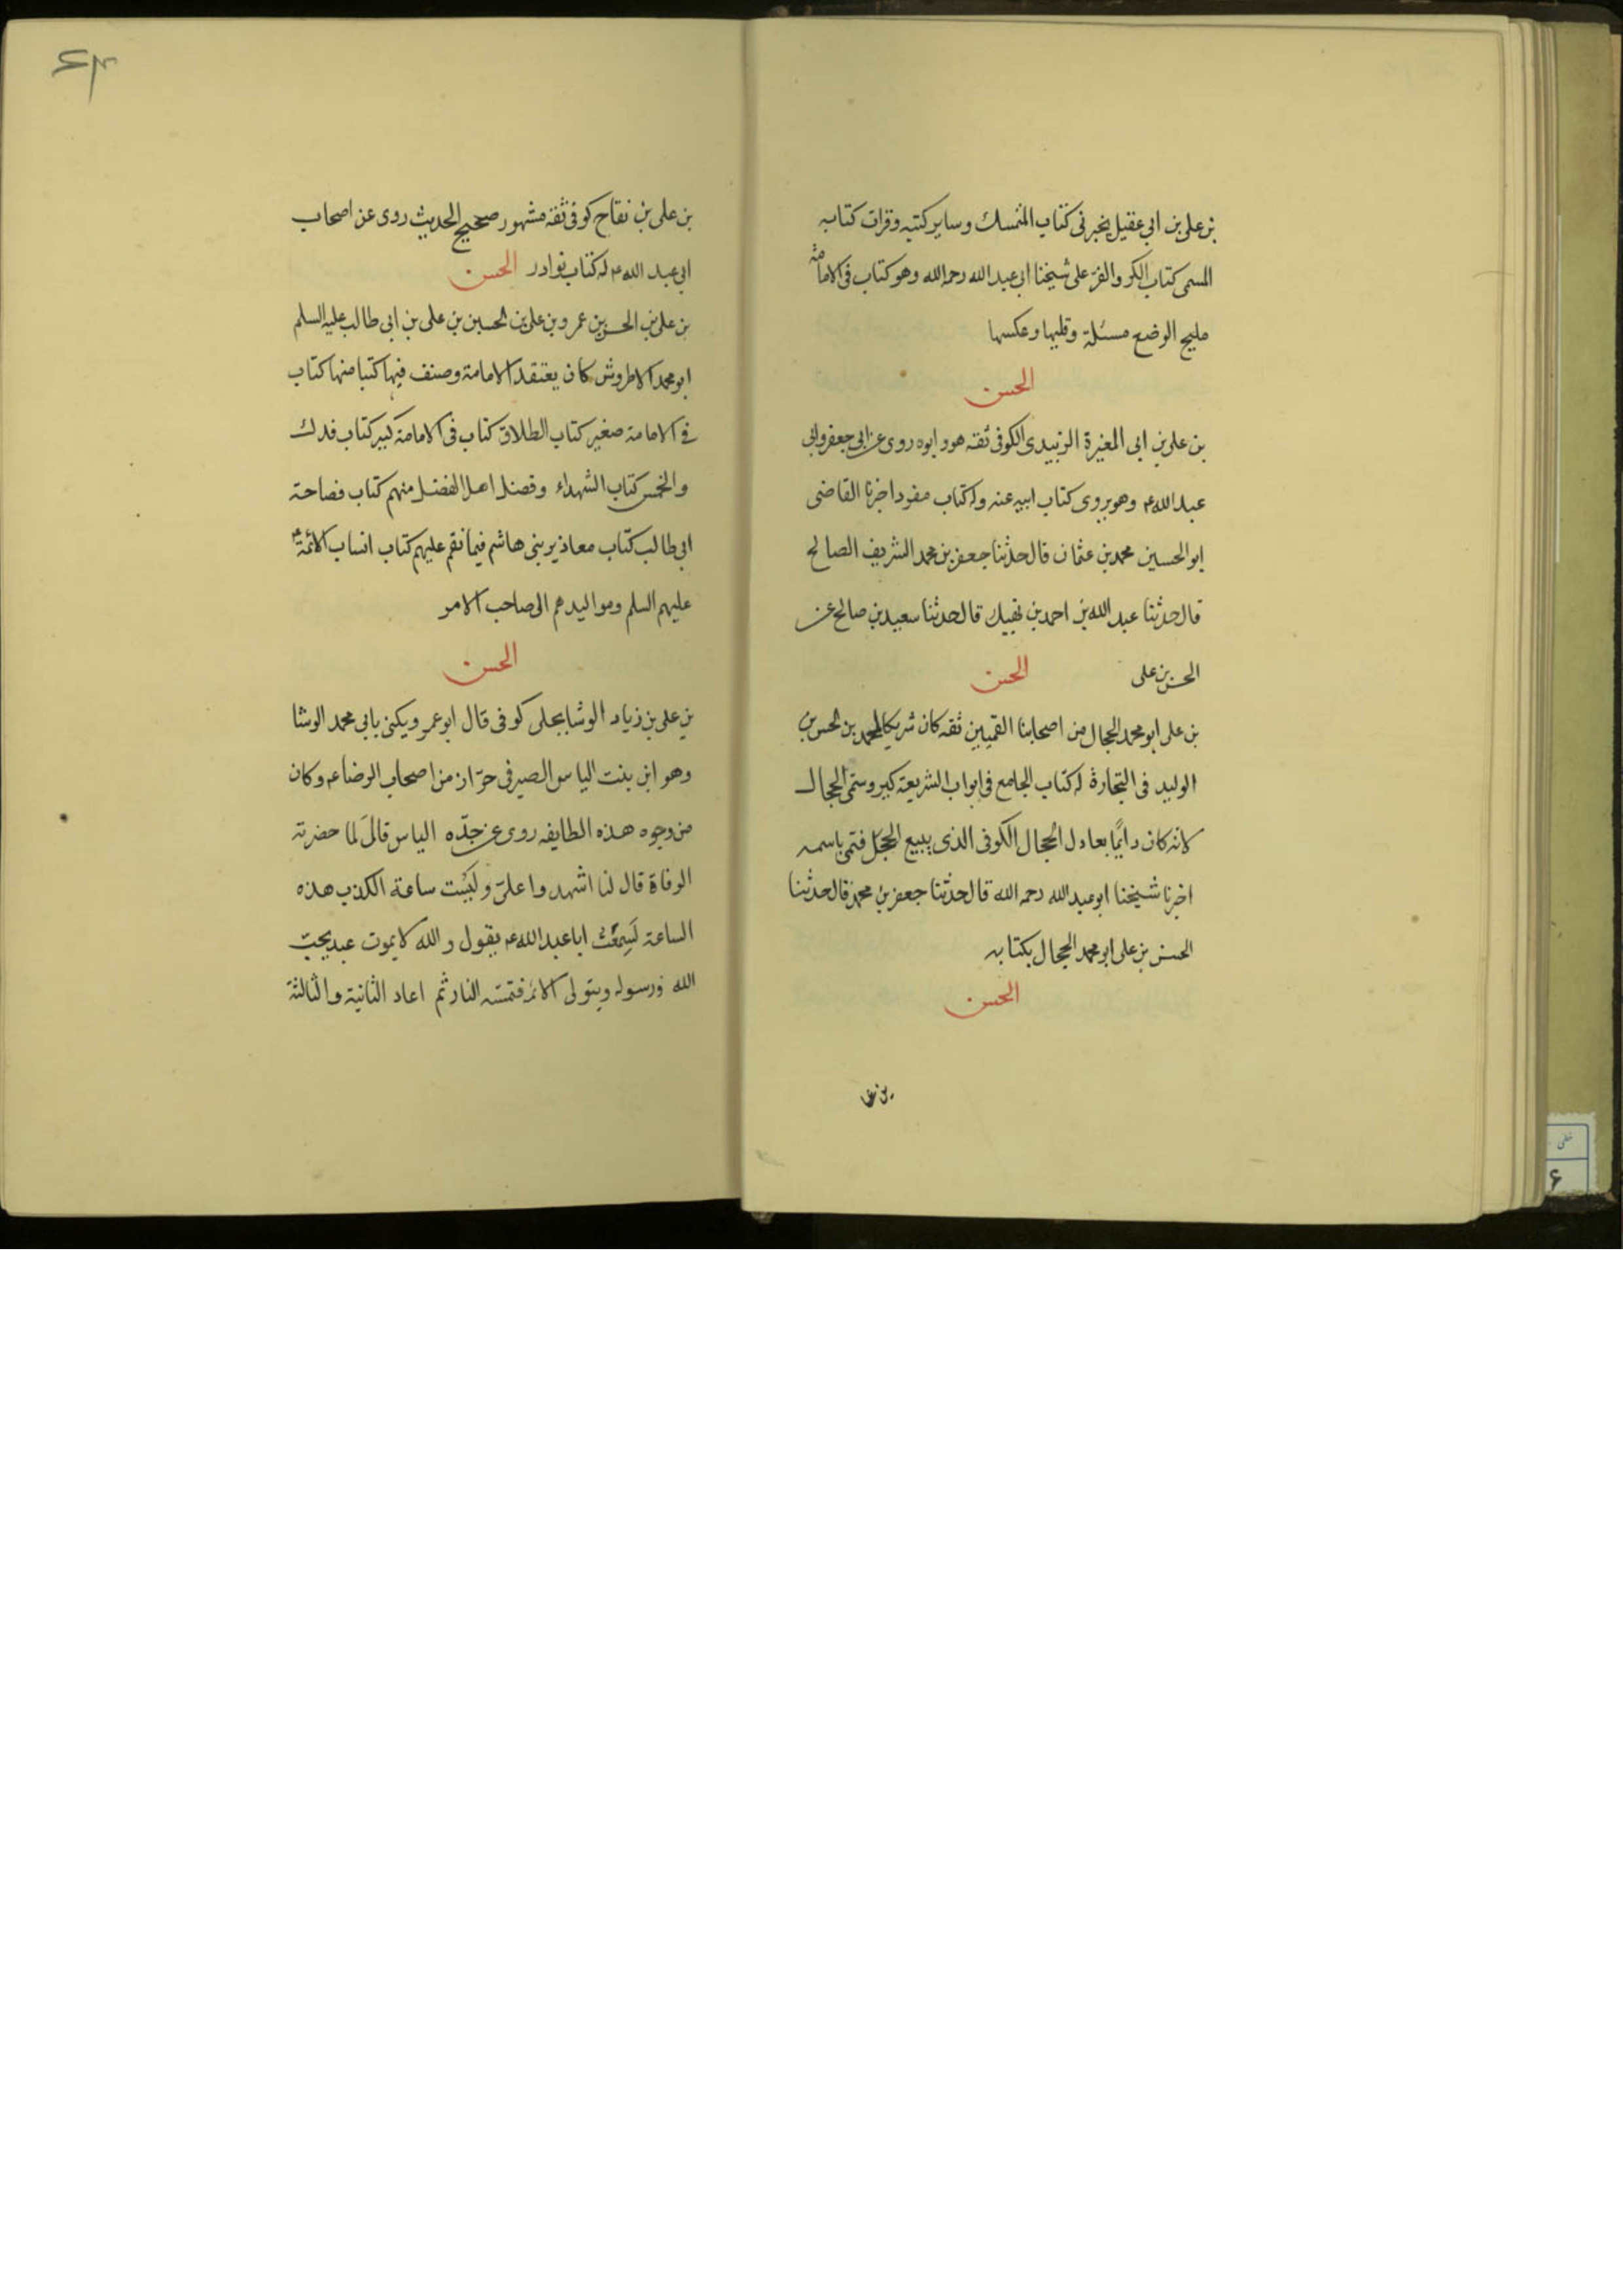 بن على بن ابى عقيل يخبرنى كتاب المتمسك وساير كتبه وقرات كتابه
المسمى كتاب الكر والفر على شيخنا ابى عبد الله رحمه الله وهو كتاب فى الامامة
مليح الوضع مسئلة وقلبها وعكسها
الحسن
بن على بن ابى المغيرة الزبيدى الكوفى ثقه هو وابوه روى عن ابى جعفر وابى
عبد الله ع وهو يروى كتاب ابيه عنه وله كتاب مفرد اخبرنا القاضى
ابو الحسين محمد بن عثمان قال حدثنا جعفر بن محمد الشريف الصالح
قال حدثنا عبد الله بن احمد بن نهيك قال حدثنا سعيد بن صالح عن
الحسن بن على الحسن
بن على ابو محمد الحجال من اصحابنا القميين ثقه كان شريكا لمحمد بن الحسن بن
الوليد فى التجارة له كتاب الجامع فى ابواب الشريعة كبير وسمى الحجال
لانه كان دايمًا يعادل الحجال الكوفى الذى يبيع الحجل فسمى باسمه
اخبرنا شيخنا ابو عبد الله رحمه الله قال حدثنا جعفر بن محمد قال حدثنا
الحسن بن على ابو محمد الحجال بكتابه
الحسن
بن على
۴۶
بن على بن نقاح كوفى ثقه مشهور صحيح الحديث روى عن اصحاب
ابى عبد الله ع له كتاب نوادر الحسن
بن على بن الحسن بن عمرو بن على بن الحسين بن على بن ابى طالب عليه السلم
ابو محمد الاطروش كان يعتقد الامامة وصنف فيها كتبا منها كتاب
فى الامامة صغير كتاب الطلاق كتاب فى الامامة كبير كتاب فدك
والخمس كتاب الشهداء وفضل اهل الفضل منهم كتاب فصاحة
ابى طالب كتاب معاذير بنى هاشم فيما نقم عليهم كتاب انساب الائمة
عليهم السلم ومواليدهم الى صاحب الامر
الحسن
بن على بن زياد الوشا بجلى كوفى قال ابو عمرو ويكنى بابى محمد الوشا
وهو ابن بنت الياس الصيرفى خزاز من اصحاب الرضا ع وكان
من وجوه هذه الطايفه روى عن جدّه الياس قال لما حضرته
الوفاة قال لنا اشهدوا علىّ وليست ساعة الكذب هذه
الساعة لسمعت ابا عبد الله ع يقول والله لا يموت عبد يحبّ
الله ورسوله ويتولى الائمة فتمسه النار ثم اعاد الثانية والثالثة